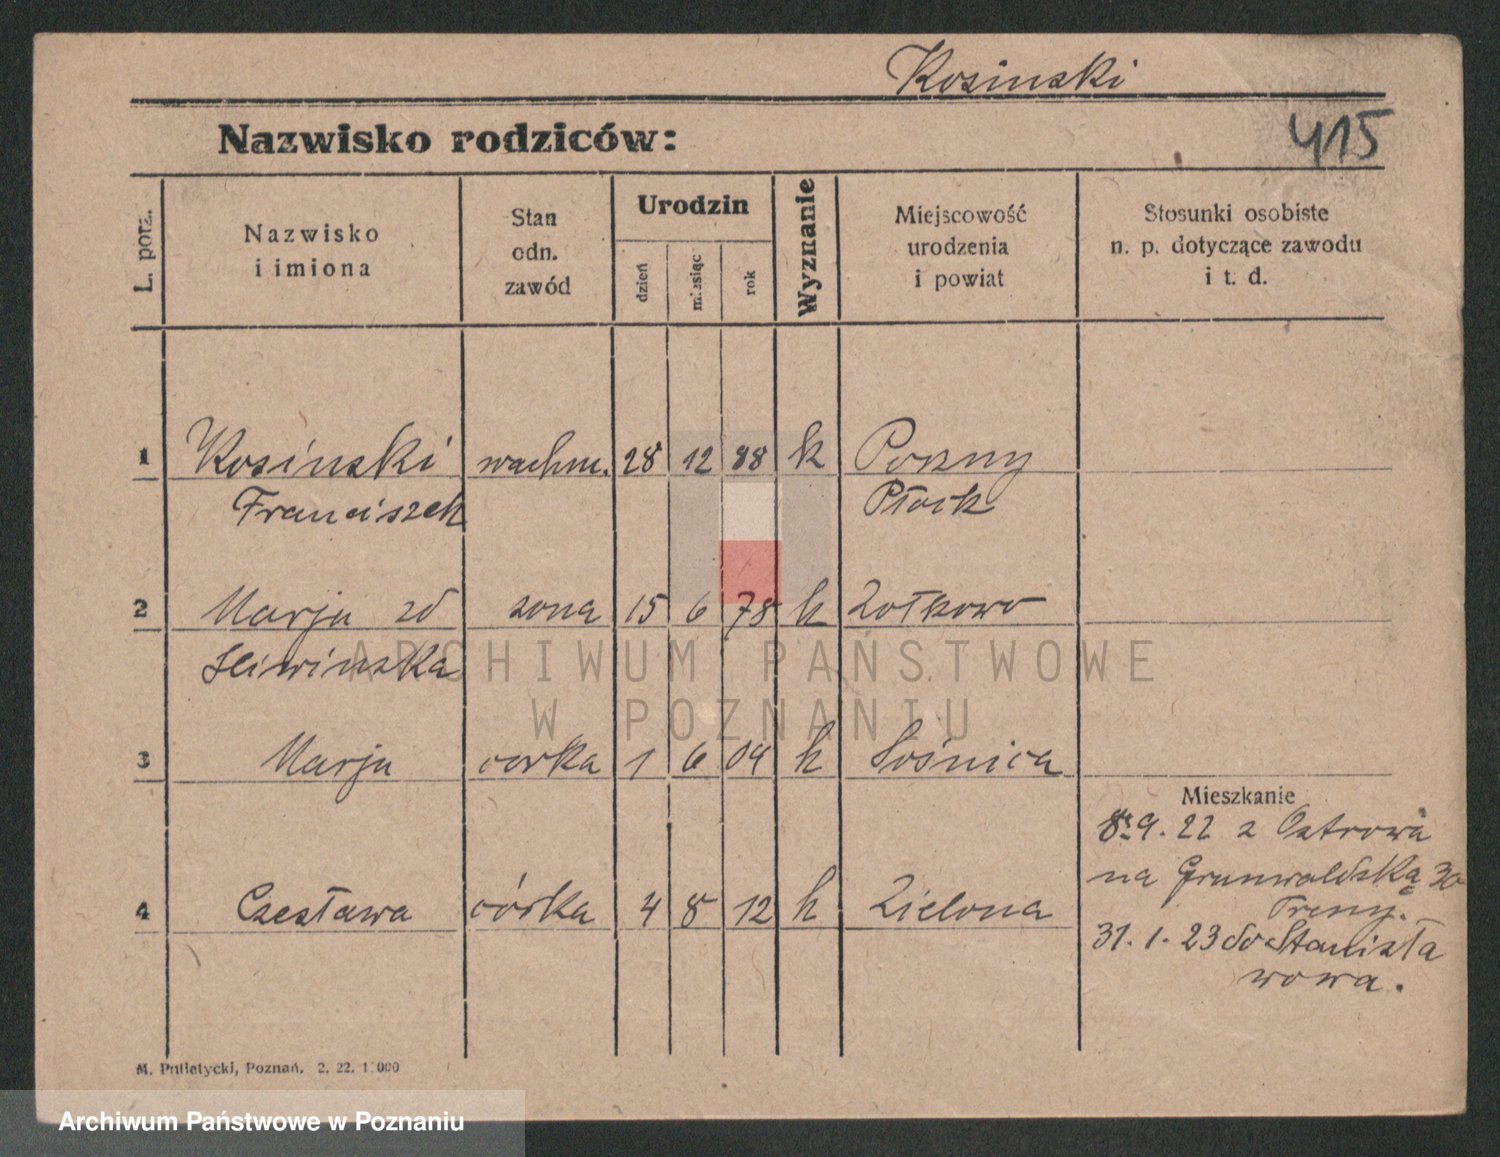 Kosinski
Nazwisko rodziców:
415
L. porz.
Nazwisko
i imiona
Stan
odn.
zawód
Urodzin
dzień
miesiąc
rok
Wyznanie
Miejscowość
urodzenia
i powiat
Stosunki osobiste
n. p. dotyczące zawodu
i t. d.
1 Kosinski wachm. 28 12 88 k
Franciszek Płock
2 Marja zd zona 15 6 78 k Zołkowo
Sliwinska
ARCHIWUM PAŃSTWOWE
W POZNANIU
3 Marja corka 1 6 04 k Sośnica
Mieszkanie
8. 9. 22 z Ostrowa
na Grunwaldską 30
4 Czesława córka 4 8 12 k Zielona
31. 1. 23 do Stanisła
wowa.
M. Putiatycki, Poznań. 2. 22. 1.000
Archiwum Państwowe w Poznaniu